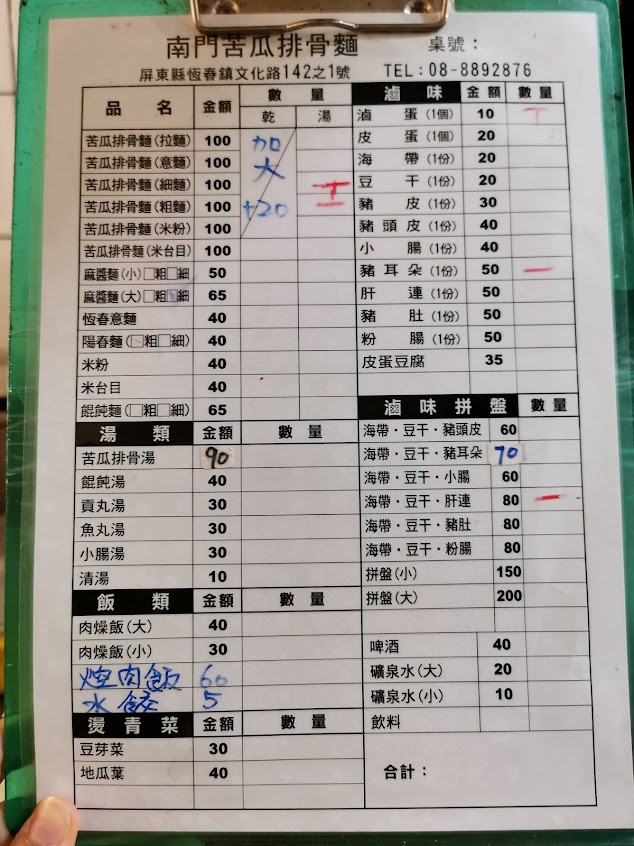 南門苦瓜排骨麵 桌號：
屏東縣恆春鎮文化路142之1號 TEL:08-8892876
品 名 金額 數 量
乾 湯
苦瓜排骨麵(拉麵) 100
苦瓜排骨麵(意麵) 100
苦瓜排骨麵(細麵) 100
苦瓜排骨麵(粗麵) 100
苦瓜排骨麵(米粉) 100
苦瓜排骨麵(米台目) 100
加
大
+20
麻醬麵(小)□粗□細 50
麻醬麵(大)□粗□細 65
恆春意麵 40
陽春麵(□粗□細) 40
米粉 40
米台目 40
餛飩麵(□粗□細) 65
湯 類 金額 數 量
苦瓜排骨湯 90
餛飩湯 40
貢丸湯 30
魚丸湯 30
小腸湯 30
清湯 10
飯 類 金額 數 量
肉燥飯(大) 40
肉燥飯(小) 30
焢肉飯 60
水餃 5
燙 青 菜 金額 數 量
豆芽菜 30
地瓜葉 40
滷 味 金 額 數 量
滷 蛋(1個) 10
皮 蛋(1個) 20
海 帶(1份) 20
豆 干(1份) 20
豬 皮(1份) 30
豬 頭 皮(1份) 40
小 腸(1份) 40
豬 耳 朵(1份) 50 一
肝 連(1份) 50
豬 肚(1份) 50
粉 腸(1份) 50
皮蛋豆腐 35
滷 味 拼 盤 數 量
海帶・豆干・豬頭皮 60
海帶・豆干・豬耳朵 70
海帶・豆干・小腸 60
海帶・豆干・肝連 80 一
海帶・豆干・豬肚 80
海帶・豆干・粉腸 80
拼盤(小) 150
拼盤(大) 200
啤酒 40
礦泉水(大) 20
礦泉水(小) 10
飲料
合計：